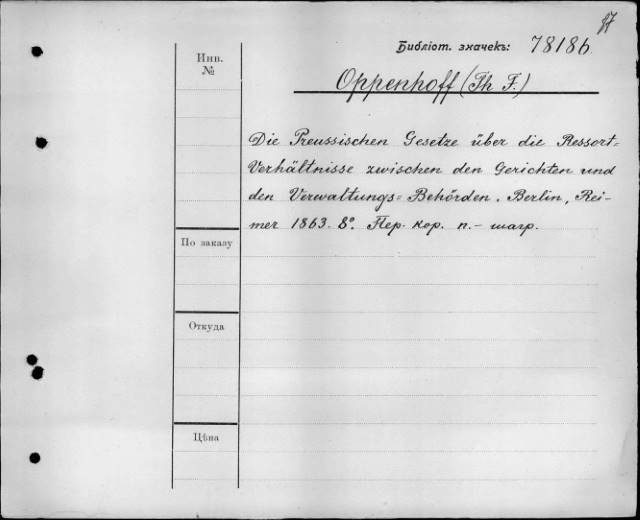 87
Библіот. значекъ: 78186.
Инв.
№
Oppenhoff (Th F.)
Die Preussischen Gesetze über die Ressort=
Verhältnisse zwischen den Gerichten und
den Verwaltungs=Behörden. Berlin, Rei-
mer 1863. 8°. Пер. кор. п.- шагр.
По заказу
Откуда
Цѣна